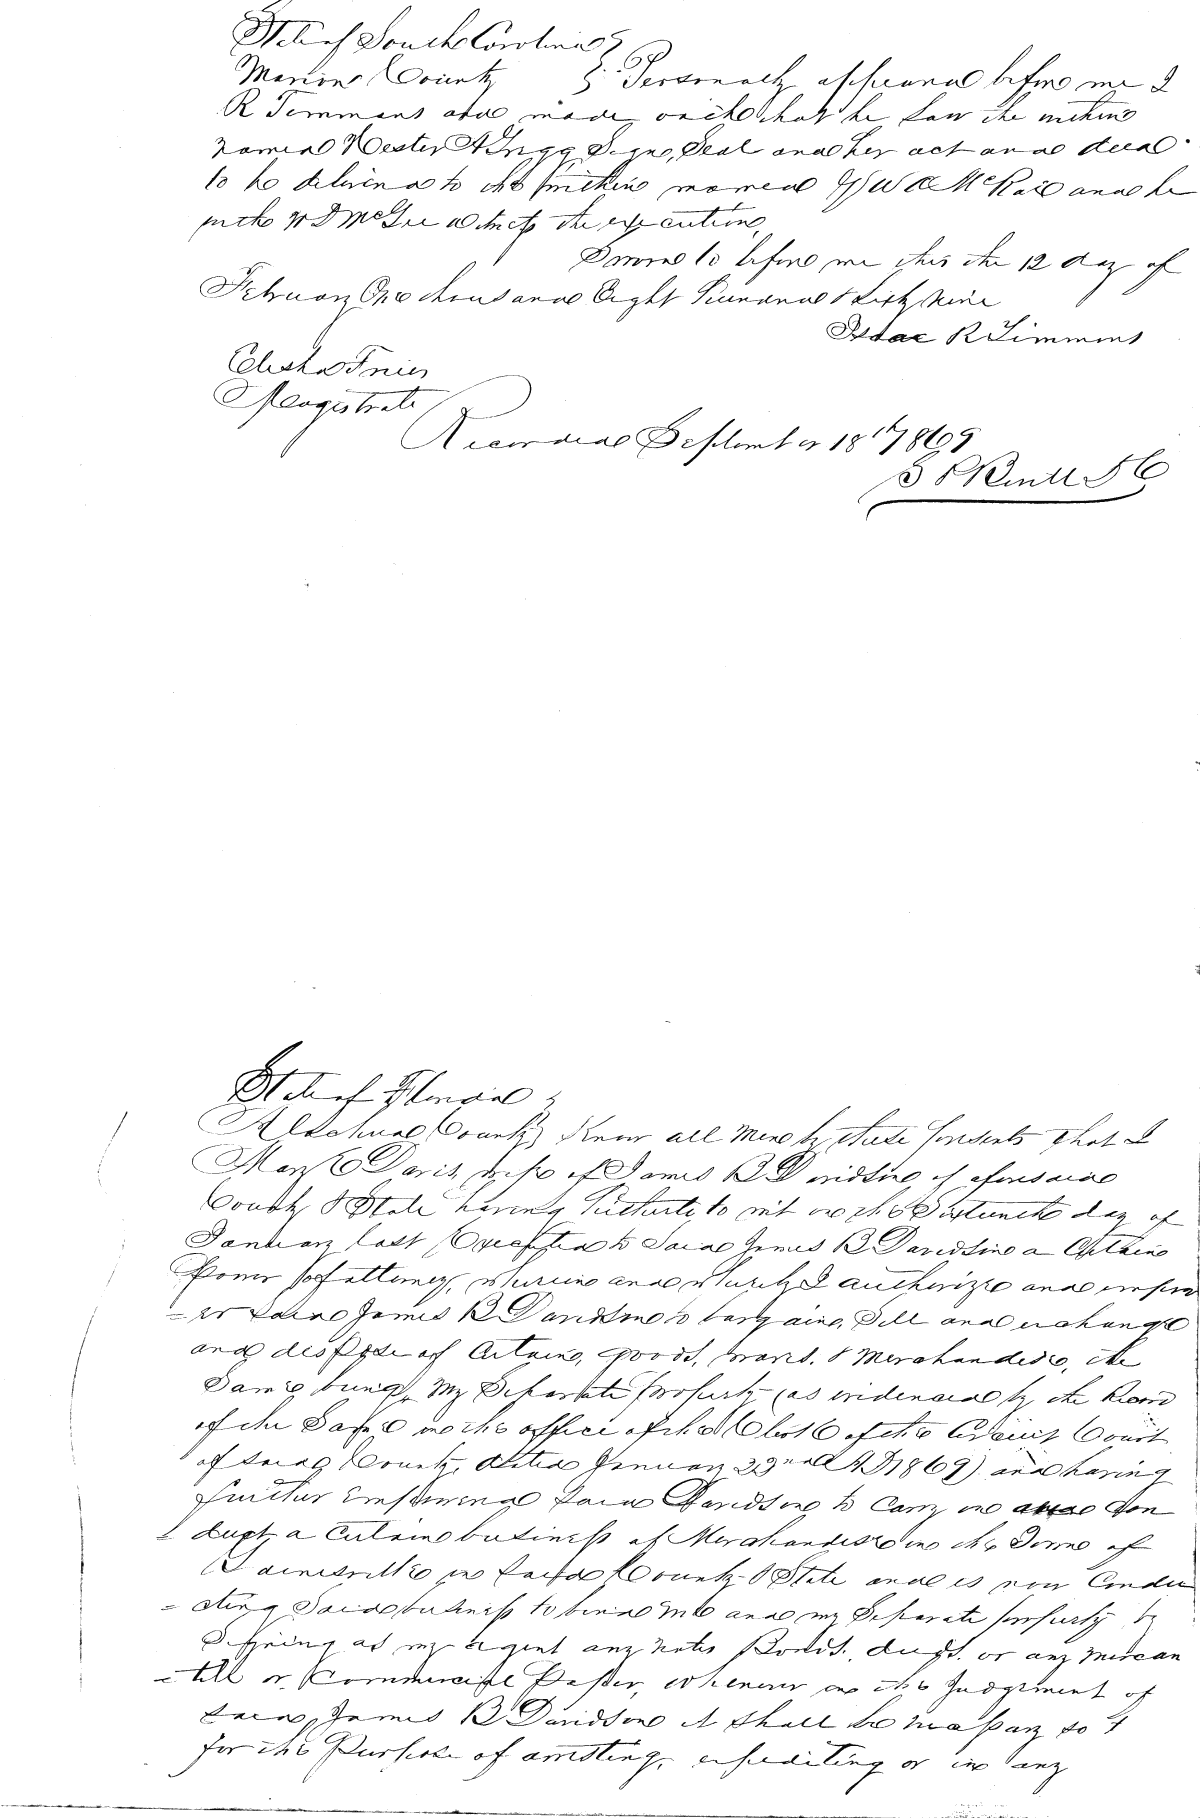 State of South Carolina
Marion County Personally appeared before me I
R Timmons and made oath that he saw the within
named Hester A Grigg Sign, Seal and her act and deed
to be delivered to the within named W McRae and he
with W D McGee witness the execution,
Sworn to before me this the 12 day of
February One thousand Eight Hundred & sixty nine
Isaac R Timmons
Elisha
Magistrate
Recorded September 18th 1869
S C
State of Florida
Alachua County Know all Men by these presents that I
Mary C Davis, wife of James B Davidson, of aforesaid
County & State having hitherto, to wit on the Sixteenth day of
January last Executed to Said James B Davidson a Certain
Power of attorney, wherein and whereby I authorize and empow
=er Said James B Davidson to bargain, Sell and exchange
and dispose of Certain, goods, wares, & Merchandise, the
Same being, My Separate property (as evidenced by the Record
of the Same in the office of the Clerk of the Circuit Court
of Said County, dated January 23rd AD 1869) and having
further empowered Said Davidson to Carry on and Con
duct a Certain business of Merchandise in the Town of
Gainesville in Said County & State and is now Condu
=cting Said business to bind me and my Separate property by
Signing as my agent any notes Bonds, or any mercan
=tile or Commercial Paper, whenever in the Judgement of
Said, James B Davidson it Shall be necessary so to
for the Purpose of assisting, expediting or in any